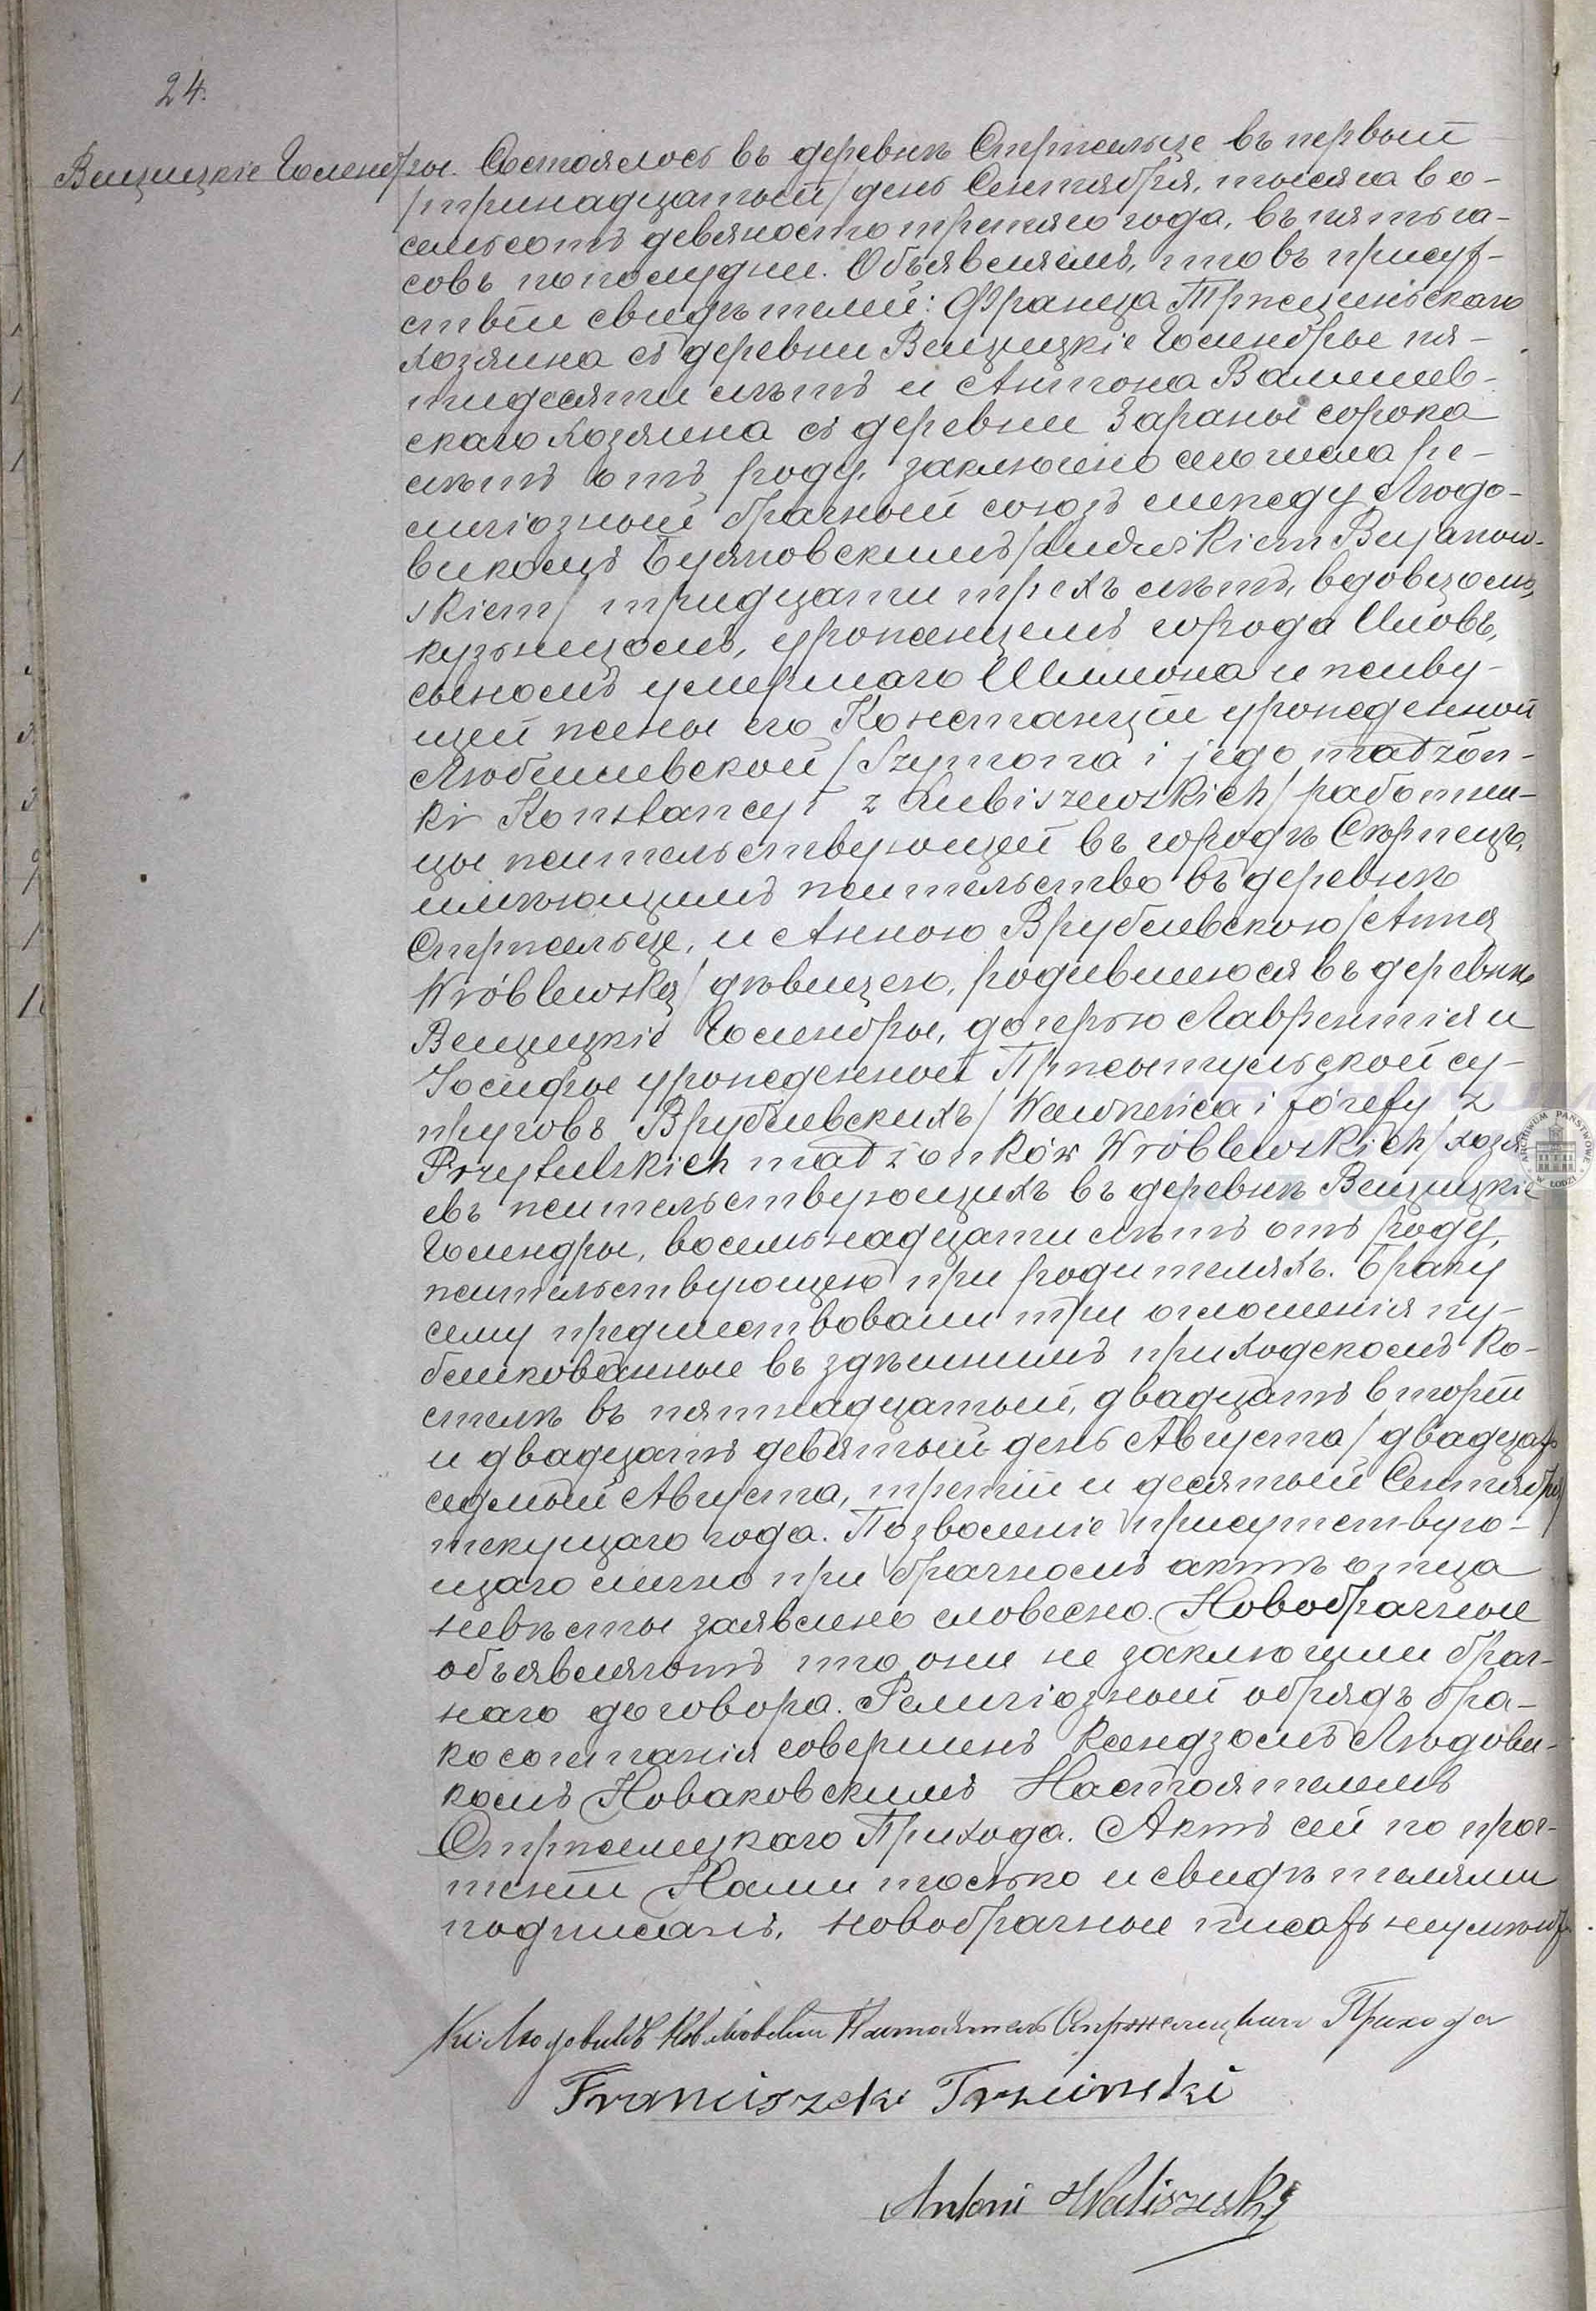 24.
Вещицкіе Голендры. Состоялось въ деревнѣ Стржельце въ первый
/тринадцатый/ день Сентября, тысяча во-
семьсотъ девяносто третяго года, въ пять ча-
совъ пополудни. Объявляемъ, что въ присут-
ствіи свидѣтелей: Франца Тржциньскаго
хозяина съ деревни Вещицкіе Голендры пя-
тидесяти лѣтъ и Антона Валишев-
скаго хозяина съ деревни Зараны сорока
лѣтъ отъ роду, заключено сего числа ре-
лигіозный брачный союзъ между Людо-
викомъ Буяновскимъ /Ludwikiem Bujanow-
skiem/ тридцати трехъ лѣтъ, вдовцомъ,
кузнецомъ, урожанцемъ города Иловъ,
сыномъ умершаго Шимона и живу-
щей жены его Констанціи урожденной
Любишевской /Szymona i jego małżon-
ki Konstancyi z Lubiszewskich/ работни-
цы жительствующей въ городѣ Сѣрпецъ,
имѣющимъ жительство въ деревнѣ
Стржельце, и Анною Врублевскою /Anną
Wróblewską/ дѣвицею, родившеюся въ деревнѣ
Вещицкіе Голендры, дочерью Лаврентія и
Іосифы урожденной Пржытульской су-
пруговъ Врублевскихъ /Wawrzeńca i Józefy z
Przytulskich małżonków Wróblewskich/ хозя
евъ жительствующихъ въ деревнѣ Вещицкіе
Голендры, восемьнадцати лѣтъ отъ роду,
жительствующею при родителяхъ. Браку
сему предшествовали три оглошенія пу-
бликованные въ здѣшнимъ приходскомъ Ко-
стелѣ въ пятнадцатый, двадцать вторій
и двадцать девятый день Августа /двадцать
седмый Августа, третій и десятый Сентября/
текущаго года. Позволеніе присутствую-
щаго лично при брачномъ актѣ отца
невѣсты заявлено словесно. Новобрачные
объявляютъ что они не заключили брач-
наго договора. Религіозный обрядъ бра-
косочетанія совершенъ Ксендзомъ Людови-
комъ Новаковскимъ Настоятелемъ
Стржелецкаго Прихода. Актъ сей по проч-
теніи Нами только и свидѣтелями
подписанъ, новобрачные писать неумѣютъ.
Кс: Людовикъ Новаковскій Настоятель Стржелецкаго Прихода
Franciszek Trzcinski
Antoni Waliszewski
ARCHIWUM PAŃSTWOWE W ŁODZI